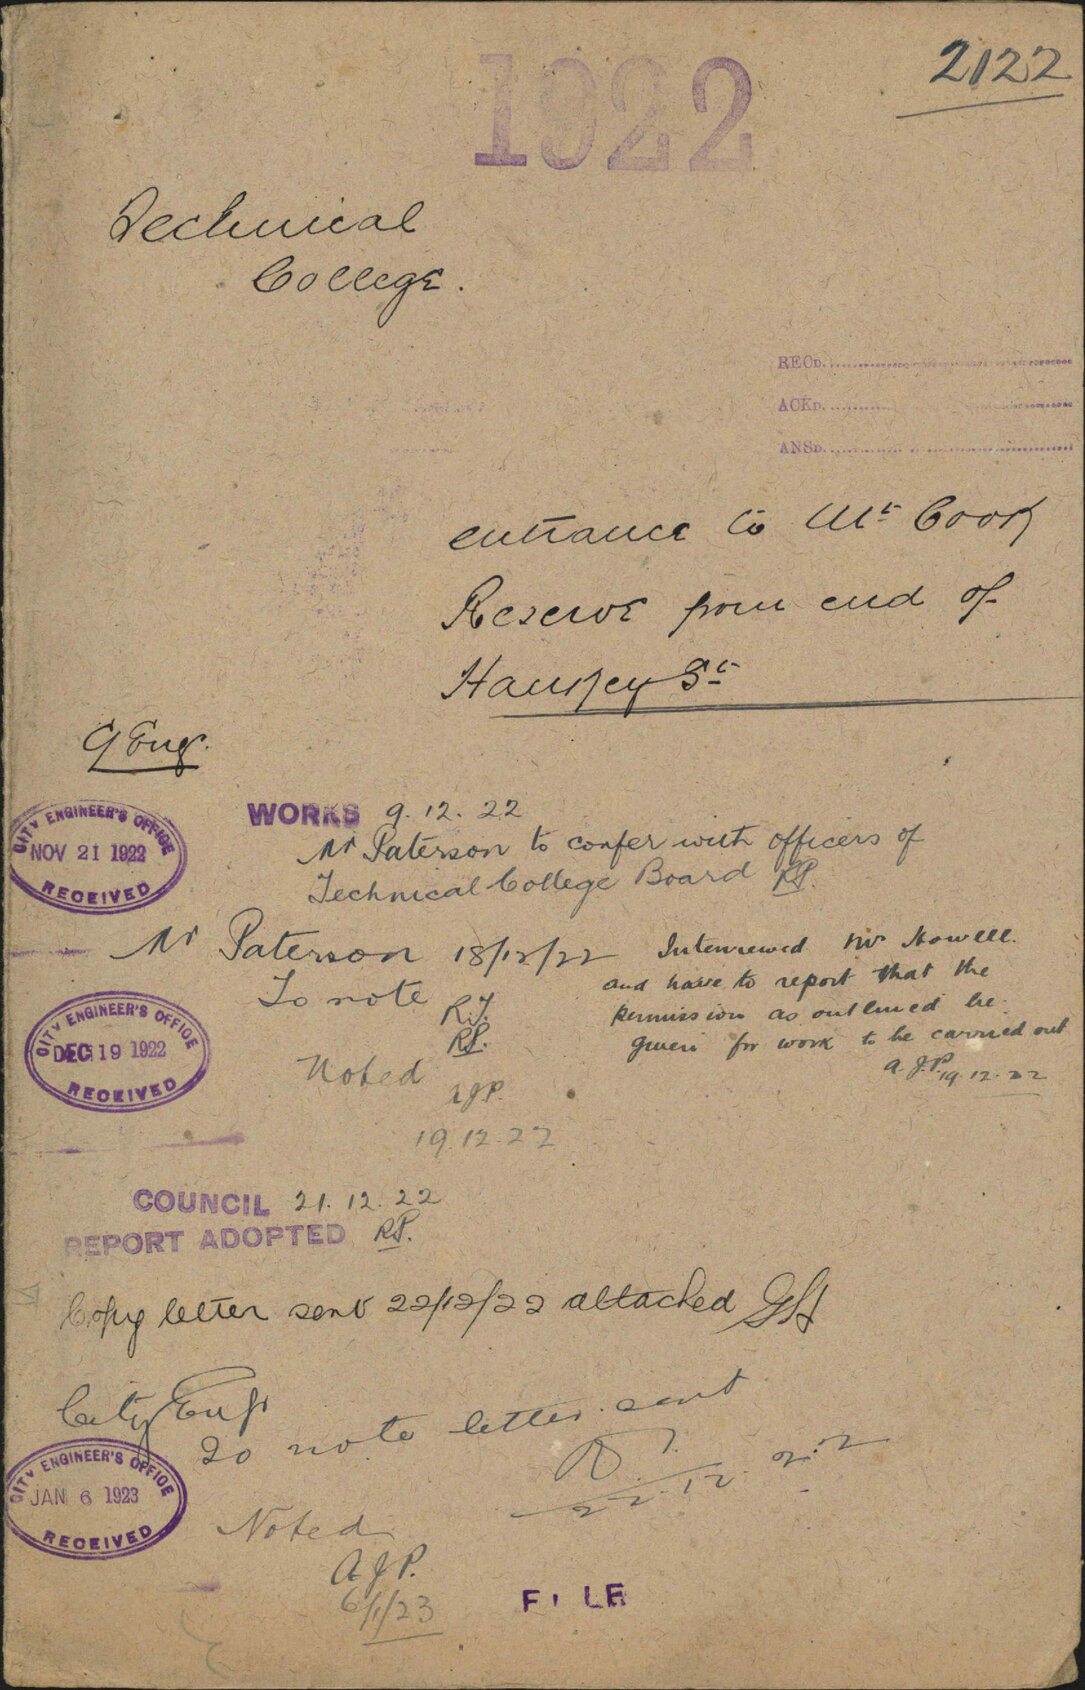 2122
1922
Technical
College.
RECD.
ACKD.
ANSD.
entrance to Mt Cook
Reserve from end of
Hankey St
C/Engr.
WORKS 9.12.22
Mr Paterson to confer with officers of
Technical College Board RP.
CITY ENGINEER'S OFFICE
NOV 21 1922
RECEIVED
Mr Paterson 18/12/22
To note R.T.
RP.
Noted AJP.
19.12.22
Interviewed Mr Howell
and have to report that the
permission as outlined be
given for work to be carried out
A.J.P. 19.12.22
CITY ENGINEER'S OFFICE
DEC 19 1922
RECEIVED
COUNCIL 21.12.22
REPORT ADOPTED RP.
Copy letter sent 22/12/22 attached
City Engr
To note letter sent
22.12.22
CITY ENGINEER'S OFFICE
JAN 6 1923
RECEIVED
Noted
A.J.P.
6/1/23
FILE